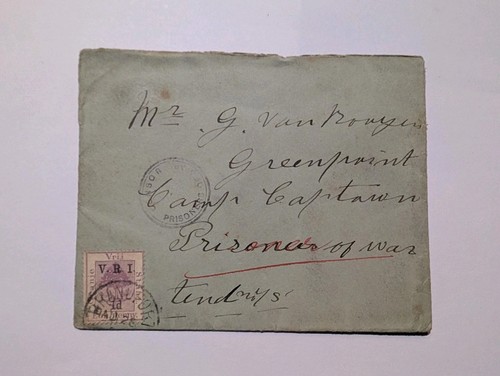 Mr G. Van Rooyen
Greenpoint
Camp Captown
Prisoner of war
PRISONERS
Vrij
V.R.I.
1d